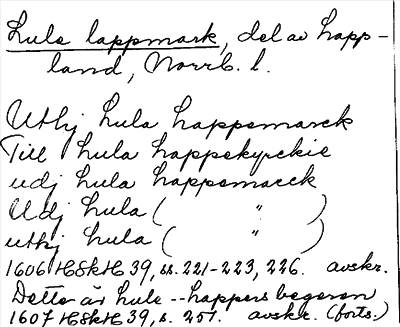 Lule lappmark, del av Lapp-
land, Norrb. l.
Uthj Lula Lappemarck
Till Lula Lappekyrckie
udj Lula Lappemarck
Udj Lula ( " )
uthj Lula ( " )
1606 HSkH 39, ss. 221-223, 226. avskr.
Dette är Lule--Lappers begeren
1607 HSkH 39, s. 251. avskr. (forts.)